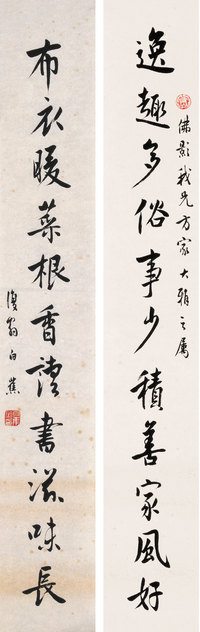 逸趣多俗事少積善家風好
佛影我兄方家大雅之属
布衣暖菜根香读書滋味長
復翁白蕉